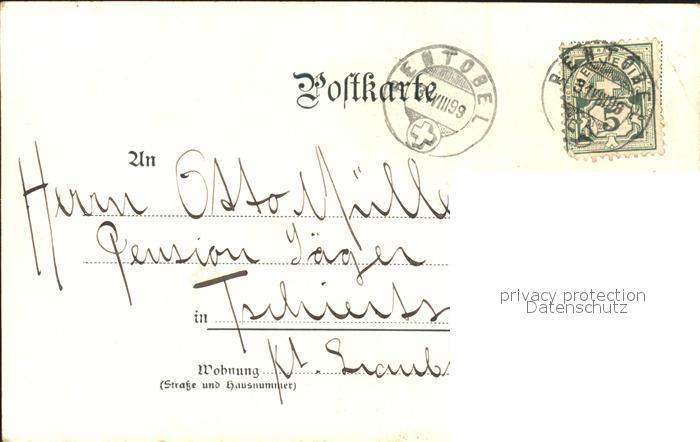 Postkarte
REHTOBEL
VIII 99
REHTOBEL
31 VIII 99
5
An
Herrn Otto Mülle
Pension Jäger
in Tschierts
Wohnung Kt. Graub
(Straße und Hausnummer)
privacy protection
Datenschutz